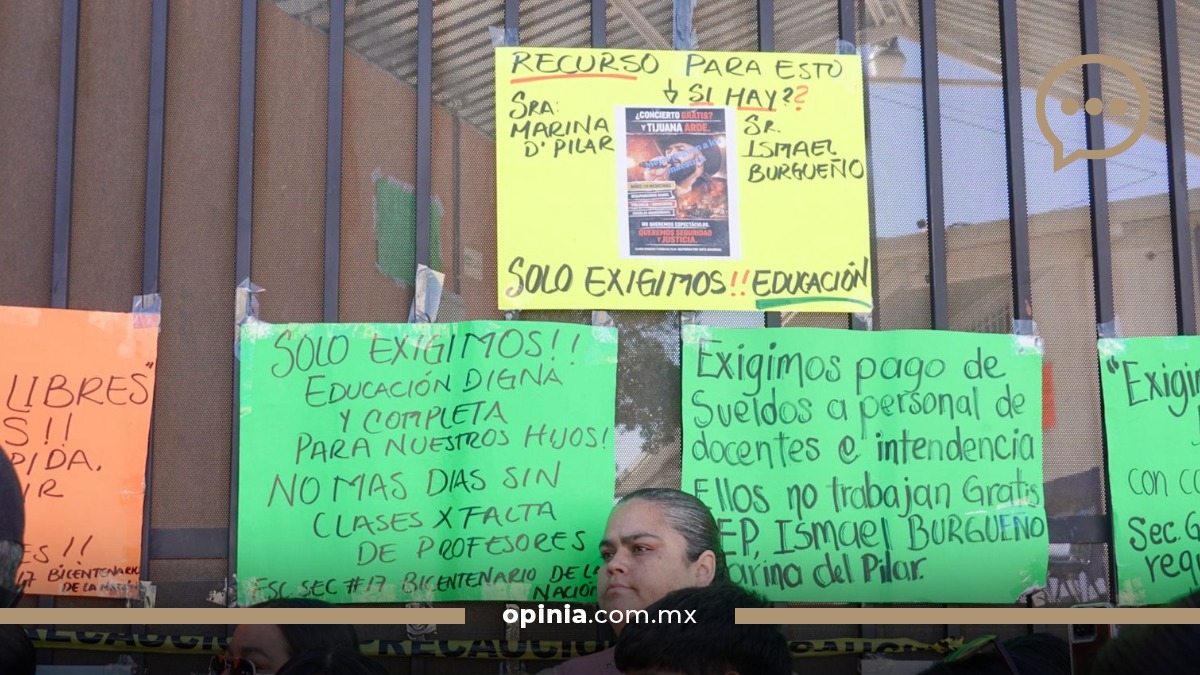 RECURSO PARA ESTO
SI HAY??
SRA:
MARINA
D'PILAR
¿CONCIERTO GRATIS?
Y TIJUANA ARDE.
NO QUEREMOS ESPECTÁCULOS.
QUEREMOS SEGURIDAD
Y JUSTICIA.
SR.
ISMAEL
BURGUEÑO
SOLO EXIGIMOS!! EDUCACIÓN
LIBRES"
S!!
PIDA.
IR
ES!!
17 BICENTENARIO
DE LA
SOLO EXIGIMOS!!
EDUCACIÓN DIGNA
Y COMPLETA
PARA NUESTROS HIJOS!
NO MAS DIAS SIN
CLASES X FACTA
DE PROFESORES
ESC. SEC #17 BICENTENARIO DE LA
NACIÓN
Exigimos pago de
Sueldos a personal de
docentes e intendencia
Ellos no trabajan Gratis
EP, ISMAEL BURGUEÑO
Marina del Pilar.
"Exigim
con ca
Sec. G
requ
opinia.com.mx
PRECAUCIÓN PRECAUCIÓN